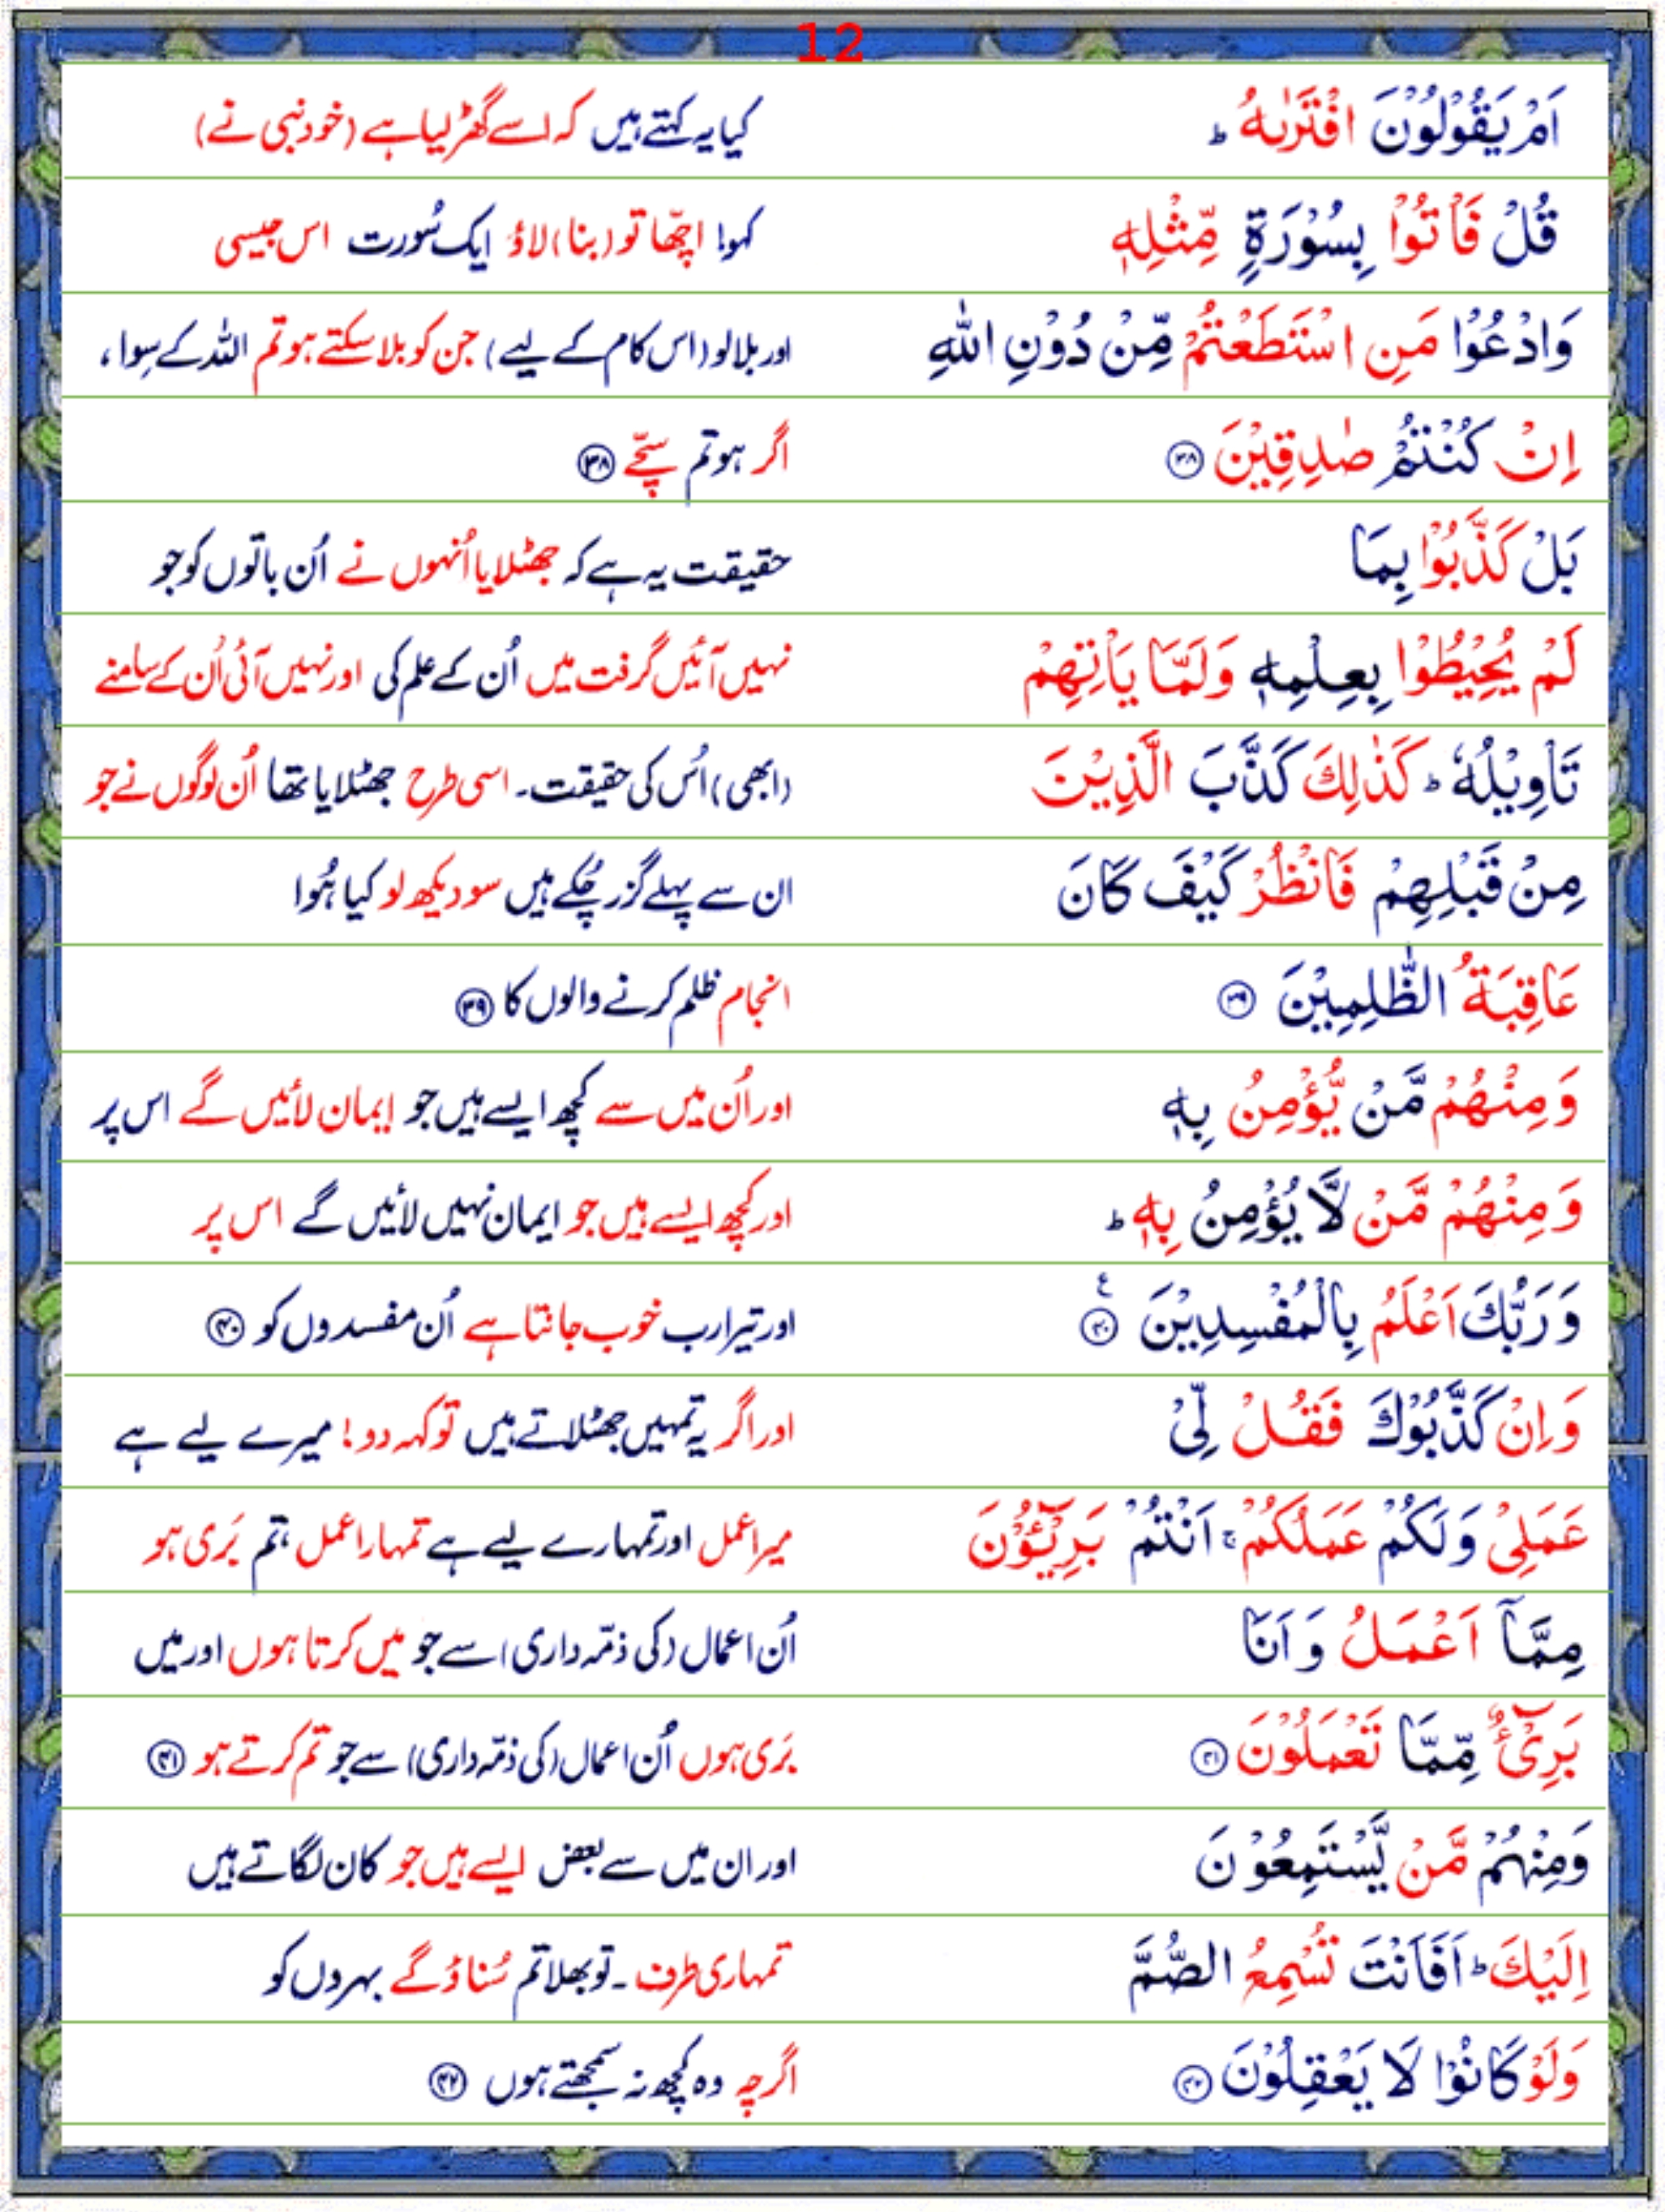 12
اَمْ يَقُوْلُوْنَ افْتَرٰىهُ ؕ کیا یہ کہتے ہیں کہ اسے گھڑ لیا ہے (خود نبی نے)
قُلْ فَاْتُوْا بِسُوْرَةٍ مِّثْلِهٖ کہو! اچّھا تو (بنا) لاؤ ایک سُورت اس جیسی
وَادْعُوْا مَنِ اسْتَطَعْتُمْ مِّنْ دُوْنِ اللّٰهِ اور بلا لو (اس کام کے لیے) جن کو بلا سکتے ہو تم اللہ کے سِوا،
اِنْ كُنْتُمْ صٰدِقِيْنَ ﴿۳۸﴾ اگر ہو تم سچّے ﴿۳۸﴾
بَلْ كَذَّبُوْا بِمَا حقیقت یہ ہے کہ جھٹلایا اُنہوں نے اُن باتوں کو جو
لَمْ يُحِيْطُوْا بِعِلْمِهٖ وَلَمَّا يَاْتِهِمْ نہیں آئیں گرفت میں اُن کے علم کی اور نہیں آئی اُن کے سامنے
تَاْوِيْلُهٗ ؕ كَذٰلِكَ كَذَّبَ الَّذِيْنَ (ابھی) اُس کی حقیقت۔ اسی طرح جھٹلایا تھا اُن لوگوں نے جو
مِنْ قَبْلِهِمْ فَانْظُرْ كَيْفَ كَانَ ان سے پہلے گزر چُکے ہیں سو دیکھ لو کیا ہُوا
عَاقِبَةُ الظّٰلِمِيْنَ ﴿۳۹﴾ انجام ظلم کرنے والوں کا ﴿۳۹﴾
وَ مِنْهُمْ مَّنْ يُّؤْمِنُ بِهٖ اور اُن میں سے کچھ ایسے ہیں جو ایمان لائیں گے اس پر
وَ مِنْهُمْ مَّنْ لَّا يُؤْمِنُ بِهٖ ؕ اور کچھ ایسے ہیں جو ایمان نہیں لائیں گے اس پر
وَ رَبُّكَ اَعْلَمُ بِالْمُفْسِدِيْنَ ﴿۴۰﴾ ع اور تیرا رب خوب جانتا ہے اُن مفسدوں کو ﴿۴۰﴾
وَ اِنْ كَذَّبُوْكَ فَقُلْ لِّىْ اور اگر یہ تمہیں جھٹلاتے ہیں تو کہہ دو! میرے لیے ہے
عَمَلِىْ وَ لَكُمْ عَمَلُكُمْ ۚ اَنْتُمْ بَرِيْٓـــُٔوْنَ میرا عمل اور تمہارے لیے ہے تمہارا عمل، تم بَری ہو
مِمَّاۤ اَعْمَلُ وَ اَنَا اُن اعمال (کی ذمّہ داری) سے جو میں کرتا ہوں اور میں
بَرِىْٓءٌ مِّمَّا تَعْمَلُوْنَ ﴿۴۱﴾ بَری ہوں اُن اعمال (کی ذمّہ داری) سے جو تم کرتے ہو ﴿۴۱﴾
وَمِنْهُمْ مَّنْ يَّسْتَمِعُوْنَ اور ان میں سے بعض ایسے ہیں جو کان لگاتے ہیں
اِلَيْكَ ؕ اَفَاَنْتَ تُسْمِعُ الصُّمَّ تمہاری طرف۔ تو بھلا تم سُناؤ گے بہروں کو
وَلَوْ كَانُوْا لَا يَعْقِلُوْنَ ﴿۴۲﴾ اگرچہ وہ کچھ نہ سمجھتے ہوں ﴿۴۲﴾